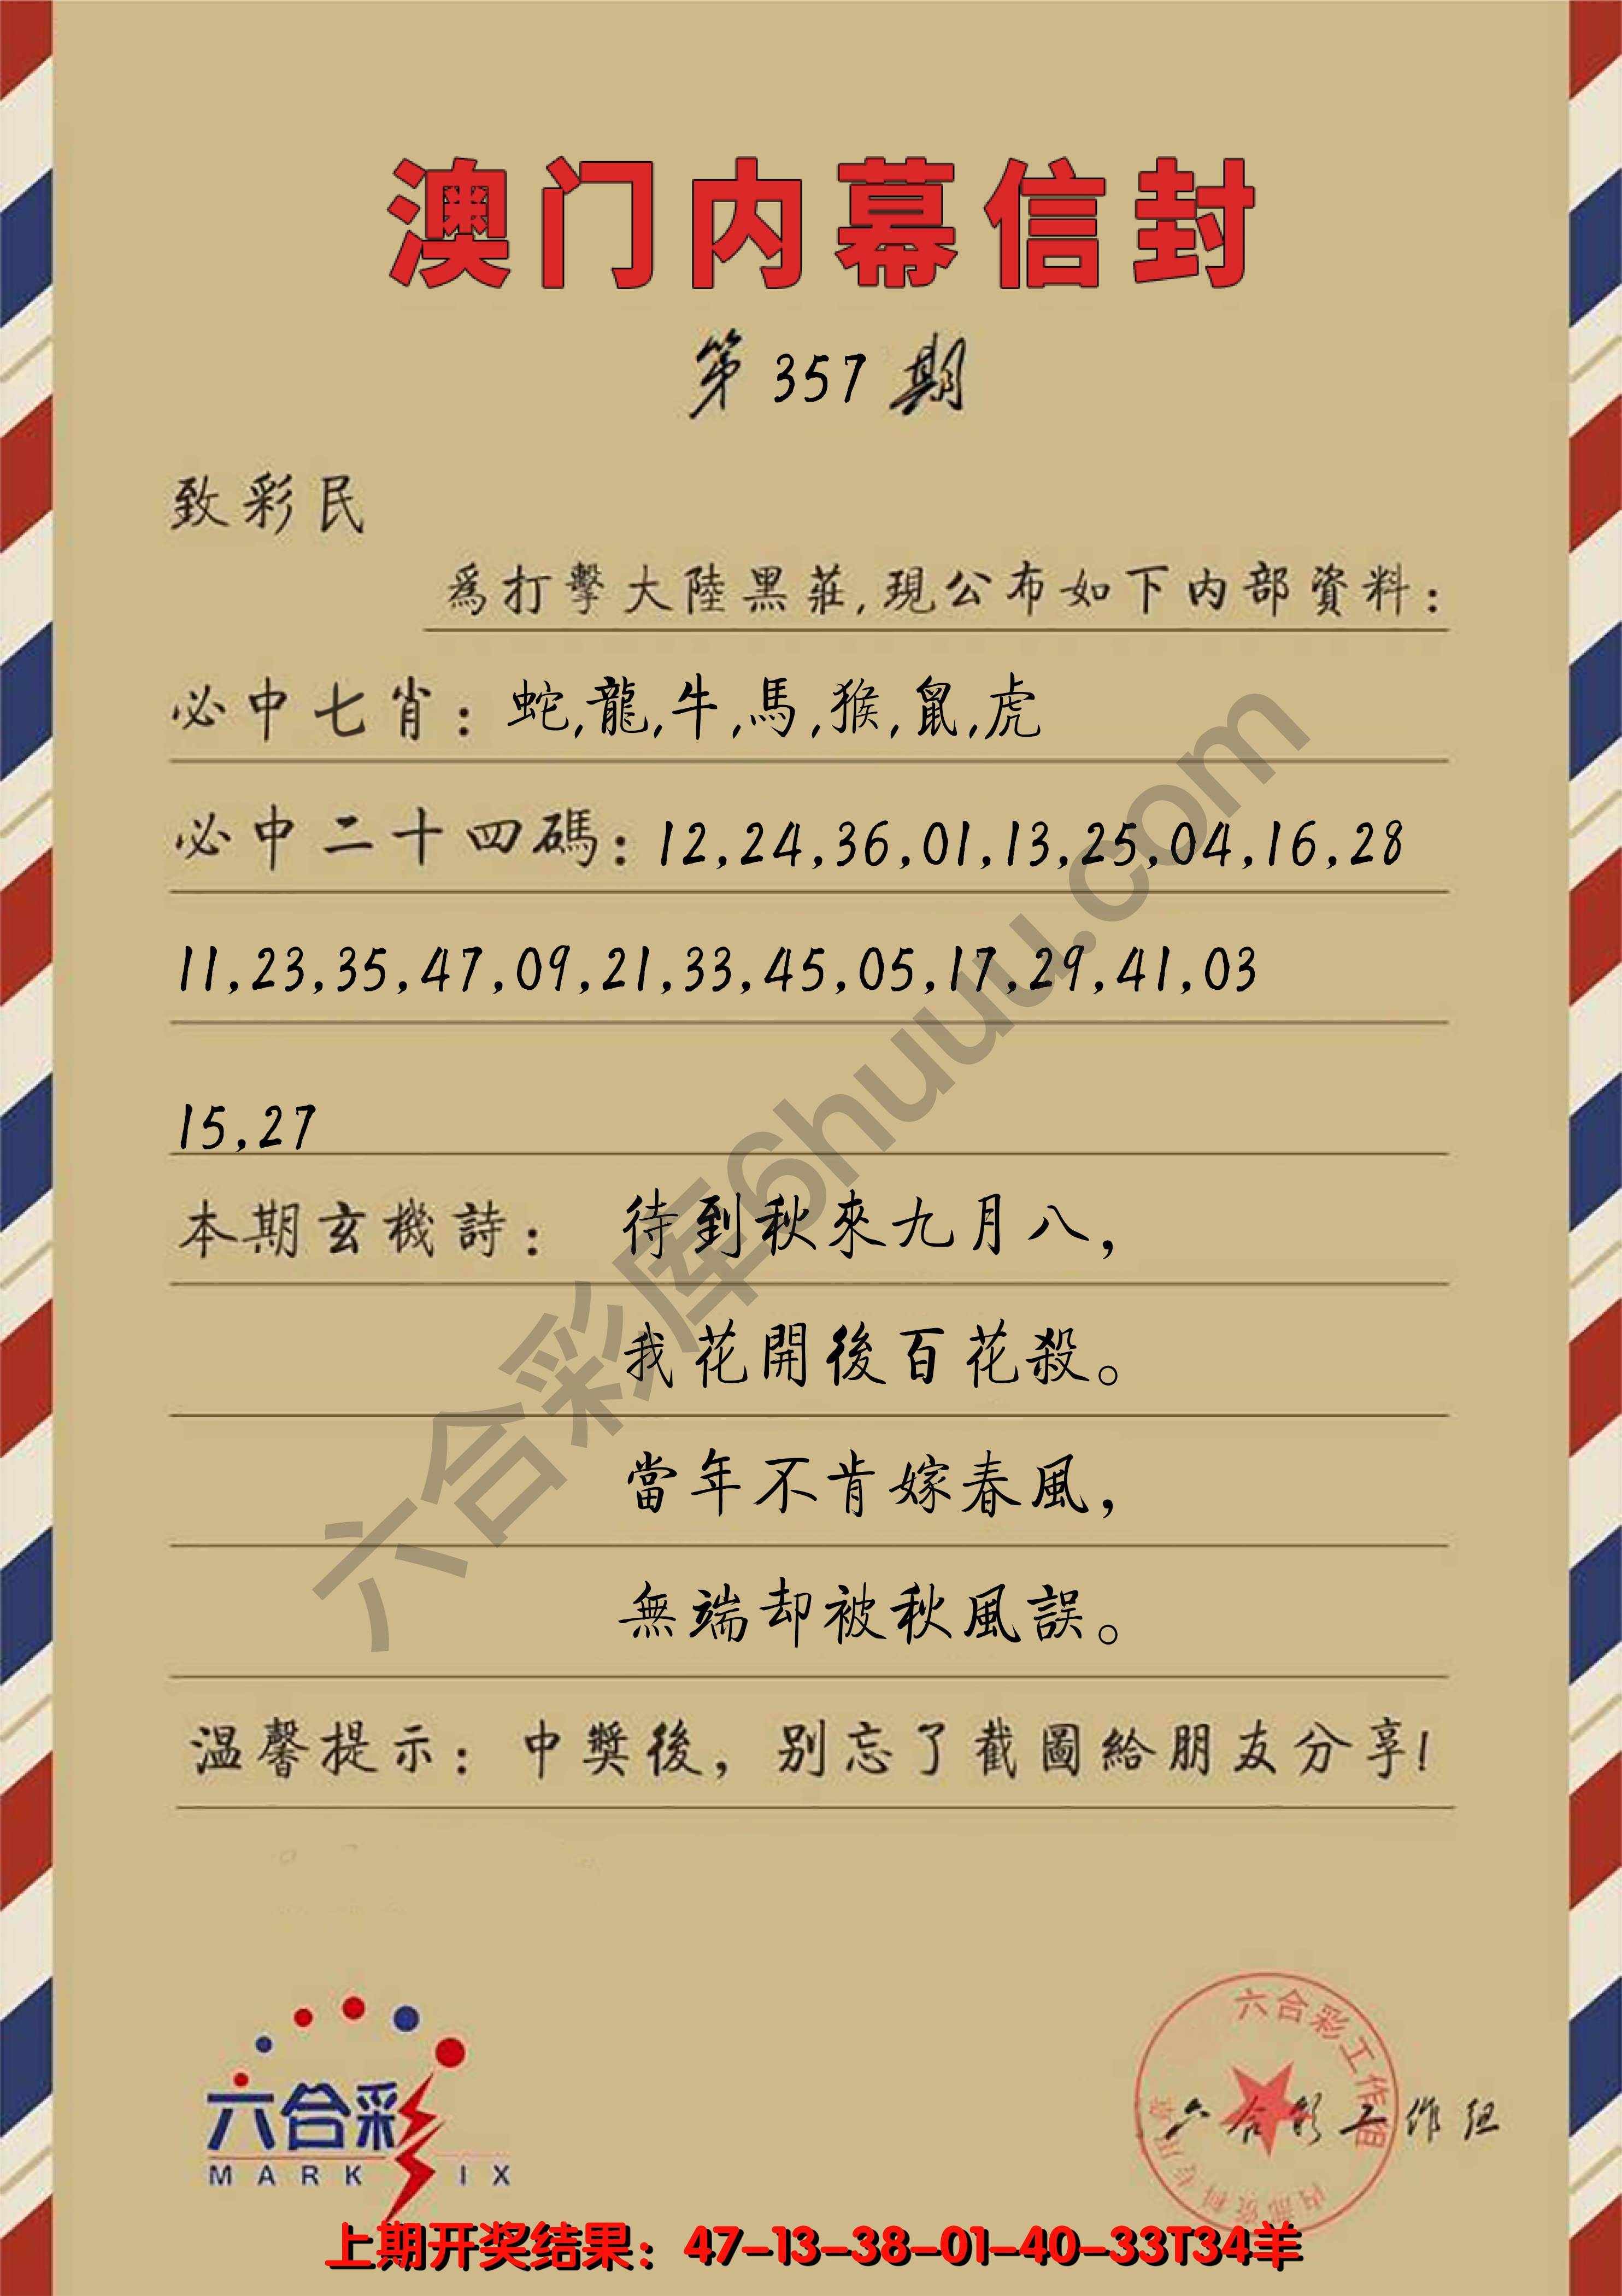 澳门内幕信封
第 357 期
致彩民
爲打擊大陸黑莊,現公布如下内部資料:
必中七肖: 蛇,龍,牛,馬,猴,鼠,虎
必中二十四碼: 12,24,36,01,13,25,04,16,28
11,23,35,47,09,21,33,45,05,17,29,41,03
15,27
本期玄機詩: 待到秋來九月八,
我花開後百花殺。
當年不肯嫁春風,
無端却被秋風誤。
温馨提示: 中獎後, 别忘了截圖給朋友分享!
六合彩库6huuu.com
六合彩
MARK IX
六合彩工作组
内部资料专用章
六合彩工作组
上期开奖结果: 47-13-38-01-40-33T34羊